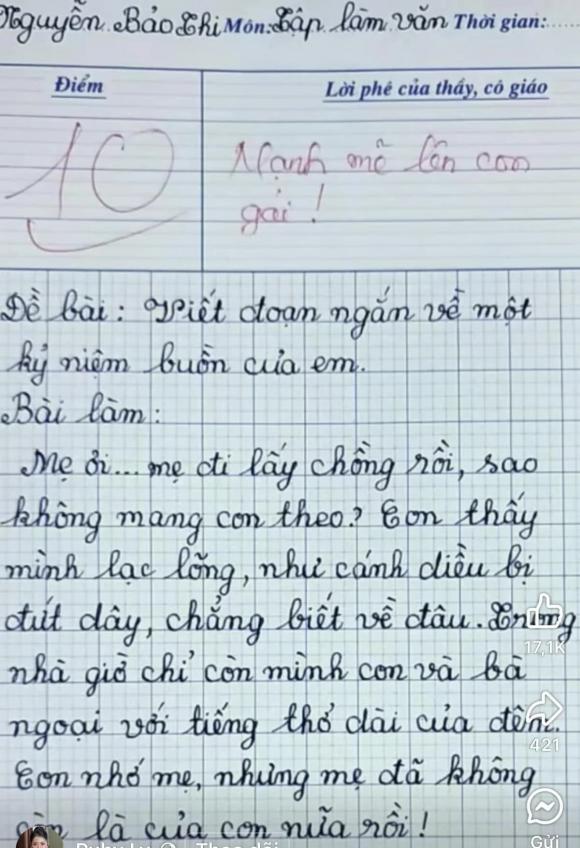 Nguyễn Bảo Thi Môn: Tập làm văn Thời gian:......
Điểm
Lời phê của thầy, cô giáo
10
Mạnh mẽ lên con
gái!
Đề bài: Viết đoạn ngắn về một
kỷ niệm buồn của em.
Bài làm:
Mẹ ơi... mẹ đi lấy chồng rồi, sao
không mang con theo? Con thấy
mình lạc lõng, như cánh diều bị
đứt dây, chẳng biết về đâu. Trong
17,1K
nhà giờ chỉ còn mình con và bà
ngoại với tiếng thở dài của đêm.
421
Con nhớ mẹ, nhưng mẹ đã không
còn là của con nữa rồi!
Gửi